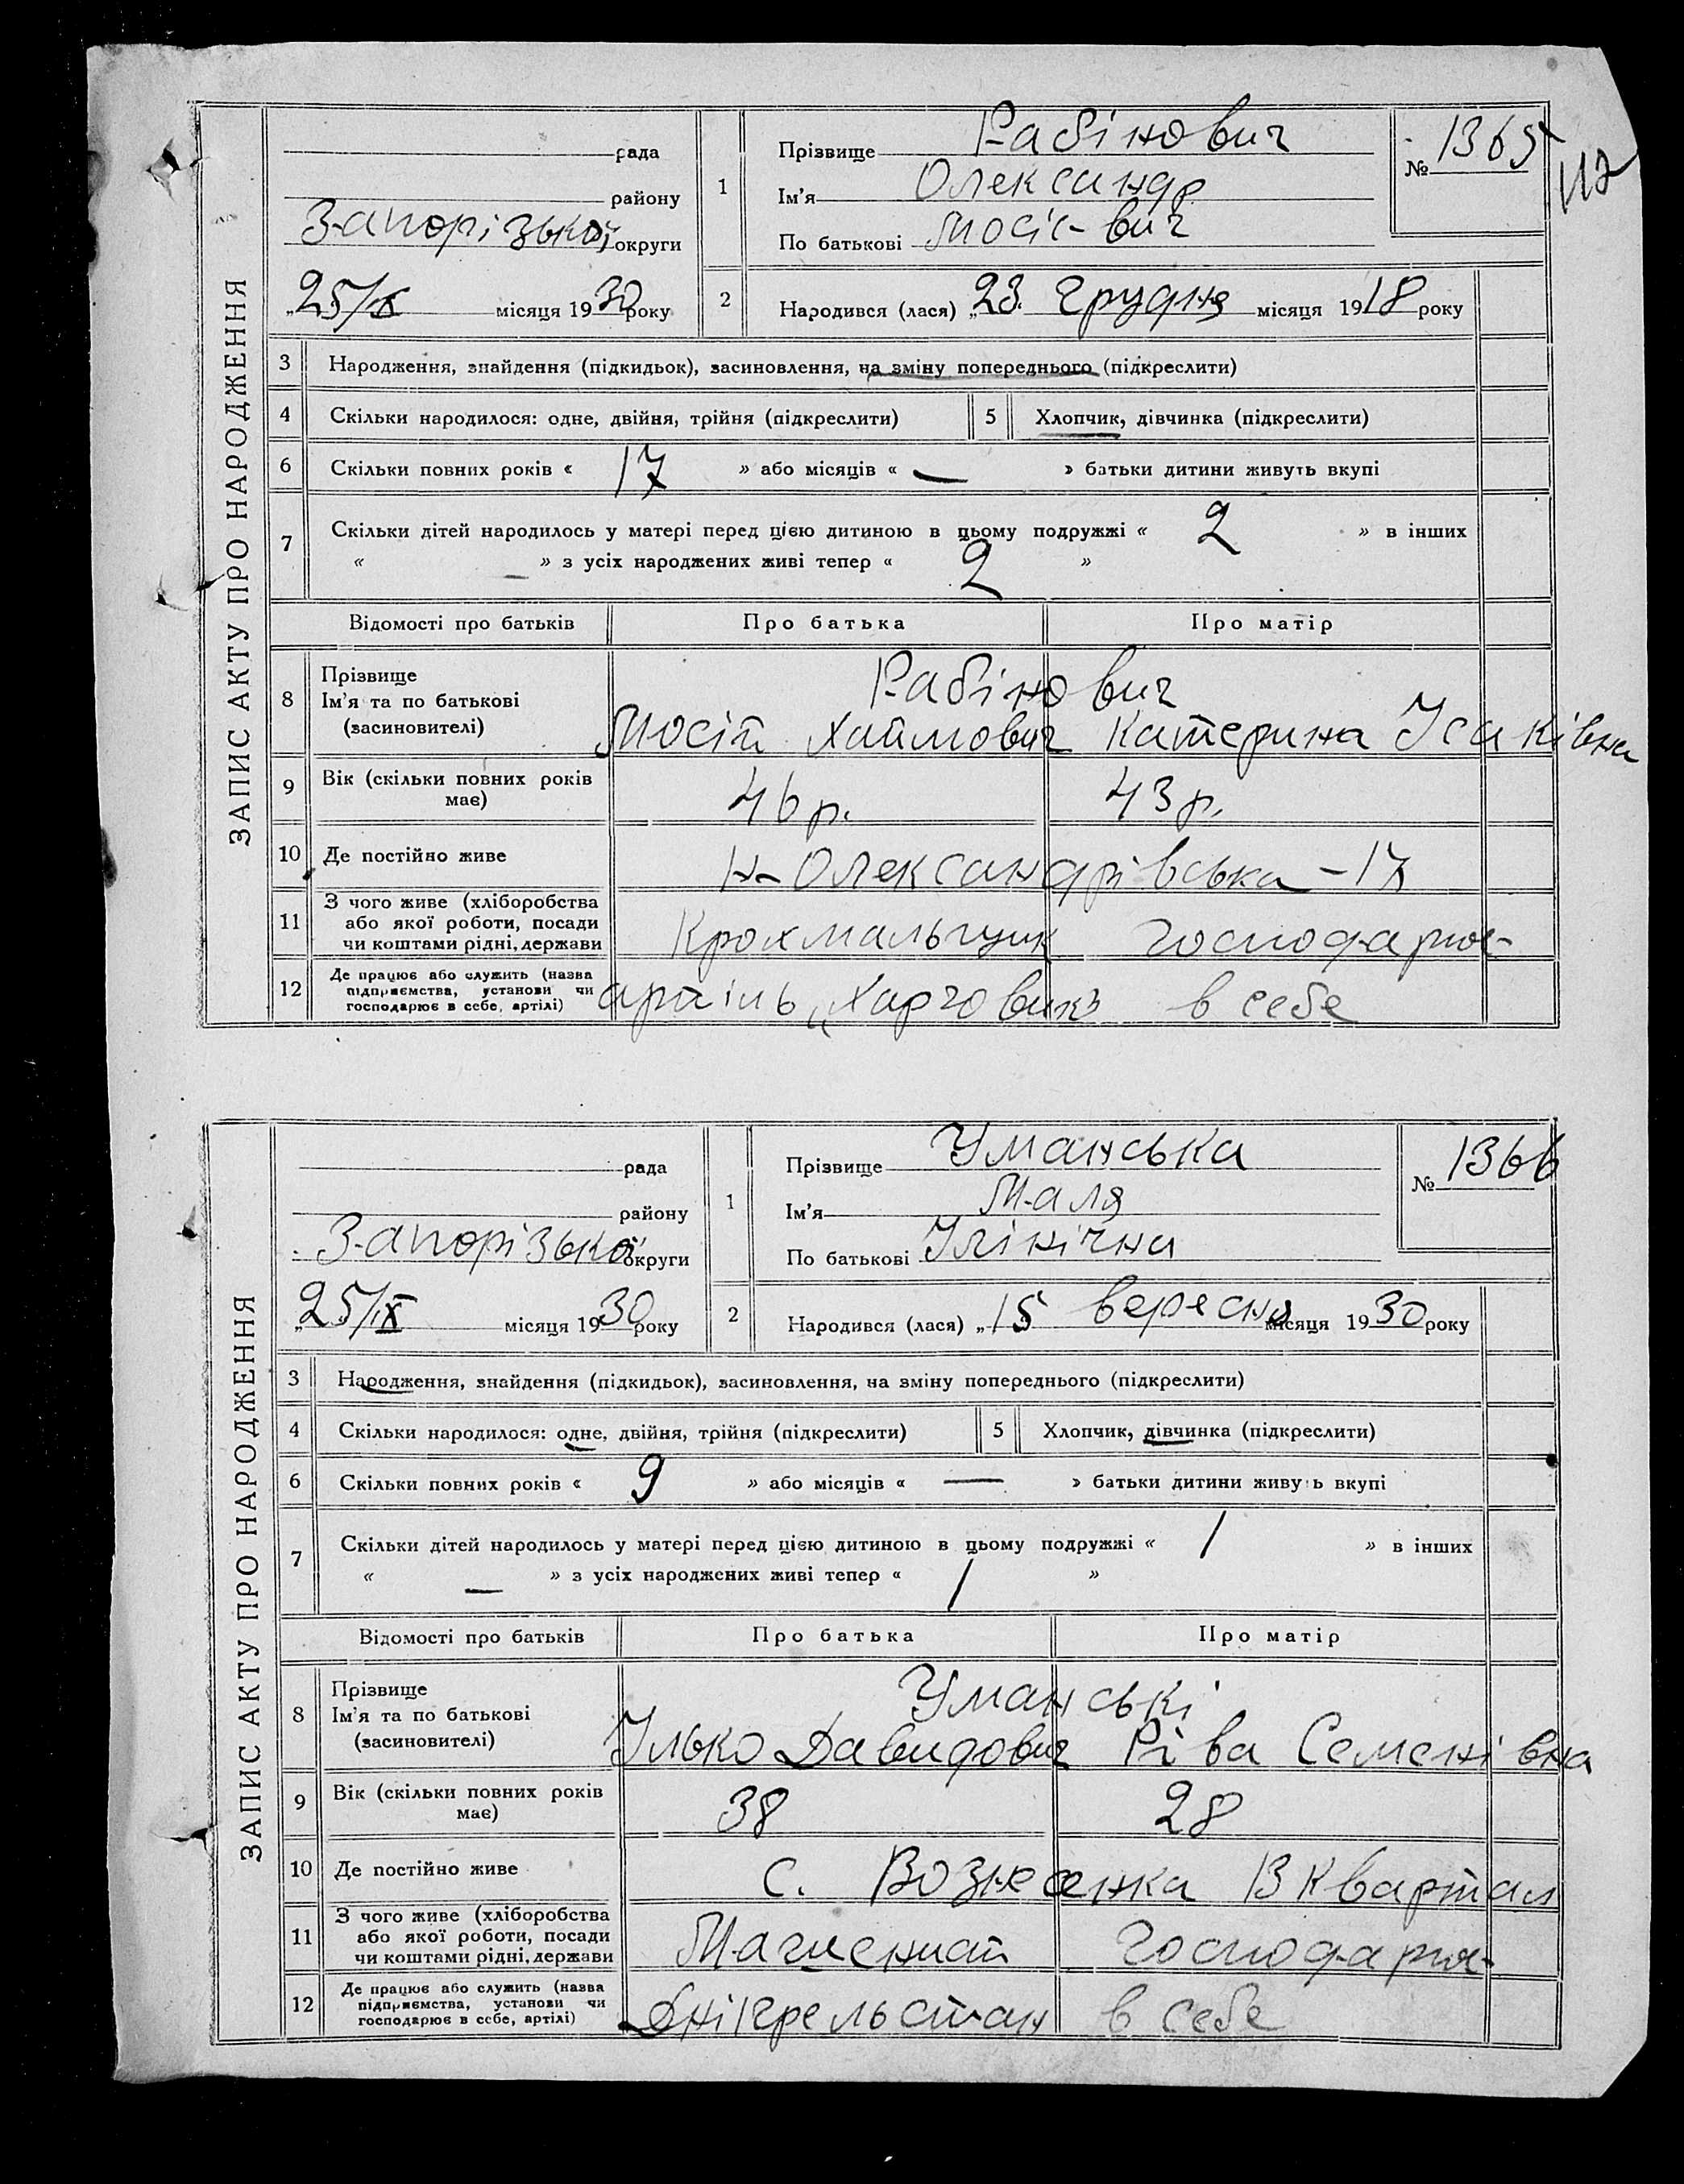 ЗАПИС АКТУ ПРО НАРОДЖЕННЯ
рада
району
Запорізької округи
„25/ІХ місяця 1930 року
1
Прізвище Рабінович
Ім'я Олександр
По батькові
№ 1365
112
2
Народився (лася) „23 Грудня місяця 1918 року
3 Народження, знайдення (підкидьок), засиновлення, на зміну попереднього (підкреслити)
4 Скільки народилося: одне, двійня, трійня (підкреслити) 5 Хлопчик, дівчинка (підкреслити)
6 Скільки повних років « 17 » або місяців « — » батьки дитини живуть вкупі
7 Скільки дітей народилось у матері перед цією дитиною в цьому подружжі « 2 » в інших
« — » з усіх народжених живі тепер « 2 »
Відомості про батьків Про батька Про матір
8 Прізвище Рабінович
Ім'я та по батькові Хаймович Катерина Ісаківна
(засиновителі)
9 Вік (скільки повних років має) 46 р. 43 р.
10 Де постійно живе Н-Олександрівська - 17
11 З чого живе (хліборобства або якої роботи, посади чи коштами рідні, держави Крохмальщик господарює
12 Де працює або служить (назва підприємства, установи чи господарює в себе, артілі) артіль „Харчовик" в себе
ЗАПИС АКТУ ПРО НАРОДЖЕННЯ
рада
району
Запорізької округи
„25/ІХ місяця 1930 року
1
Прізвище Уманська
Ім'я Маля
По батькові Іллінічна
№ 1366
2
Народився (лася) „15 вересня місяця 1930 року
3 Народження, знайдення (підкидьок), засиновлення, на зміну попереднього (підкреслити)
4 Скільки народилося: одне, двійня, трійня (підкреслити) 5 Хлопчик, дівчинка (підкреслити)
6 Скільки повних років « 9 » або місяців « — » батьки дитини живуть вкупі
7 Скільки дітей народилось у матері перед цією дитиною в цьому подружжі « 1 » в інших
« — » з усіх народжених живі тепер « 1 »
Відомості про батьків Про батька Про матір
8 Прізвище Уманські
Ім'я та по батькові Ілько Давидович Ріва Семенівна
(засиновителі)
9 Вік (скільки повних років має) 38 28
10 Де постійно живе с. Вознесенка 13 квартал
11 З чого живе (хліборобства або якої роботи, посади чи коштами рідні, держави господарює
12 Де працює або служить (назва підприємства, установи чи господарює в себе, артілі) Дніпрельстан в себе